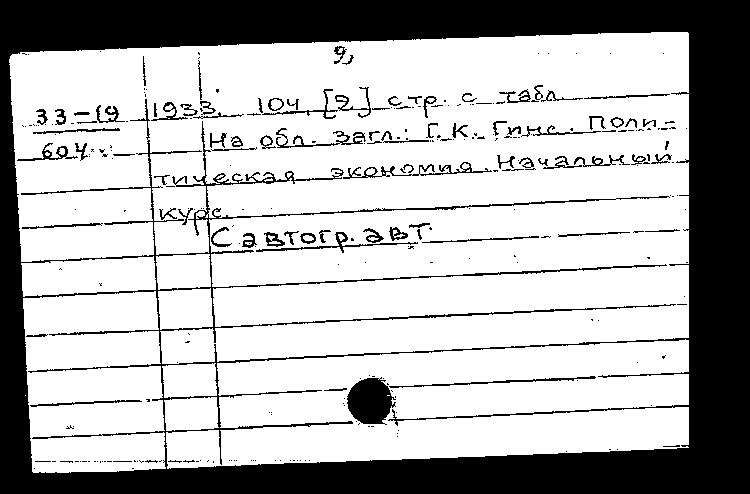 2,
33-19 1933. 104, [2] стр. с табл.
604 На обл. загл.: Г. К. Гинс. Поли-
тическая экономия. Начальный
курс.
С автогр. авт.